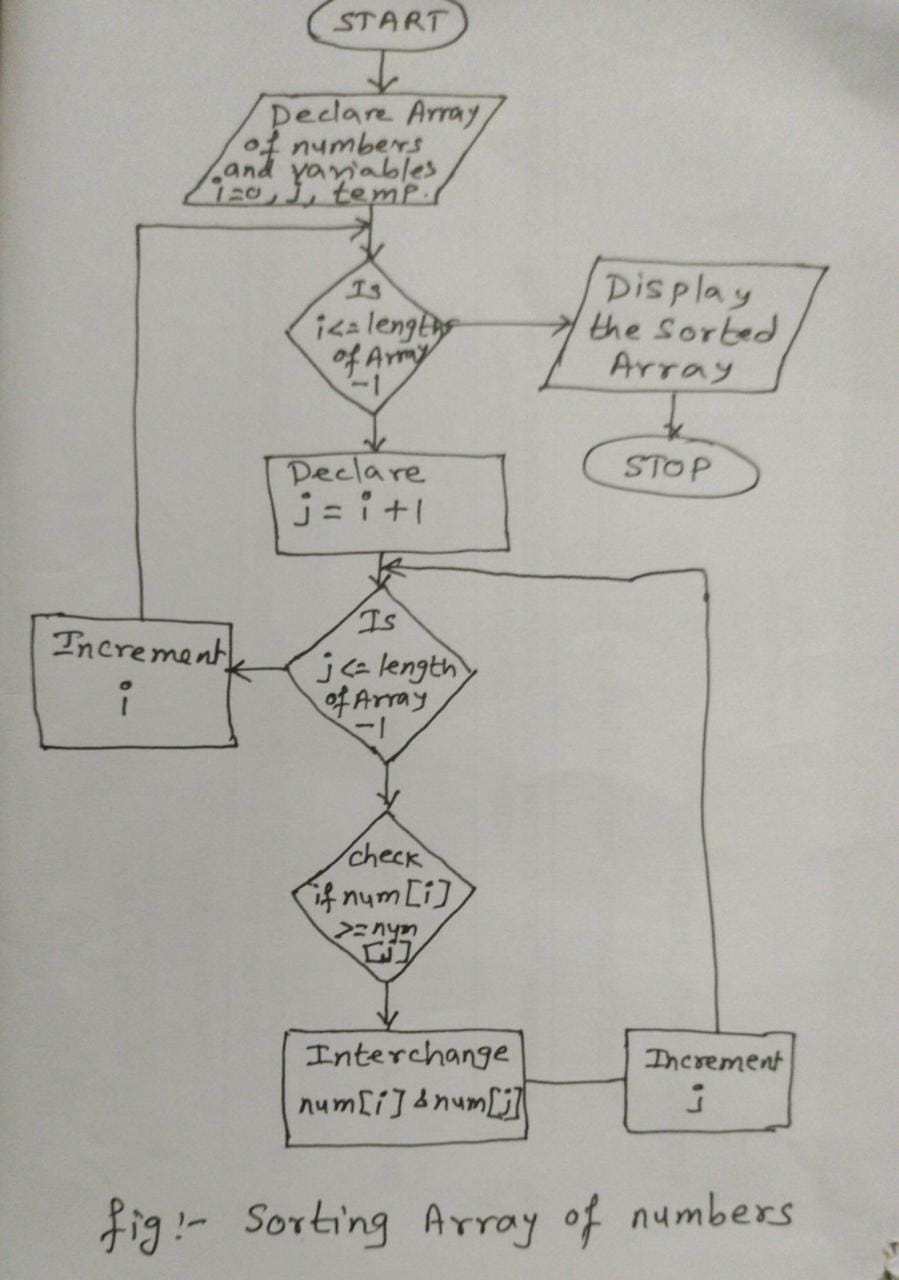 START
Declare Array
of numbers
and variables
i=0, j, temp.
Is
i<=length
of Array
-1
Display
the Sorted
Array
STOP
Declare
j = i +1
Is
j<=length
of Array
-1
Increment
i
check
if num[i]
>=num
[j]
Interchange
num[i] & num[j]
Increment
j
fig:- Sorting Array of numbers